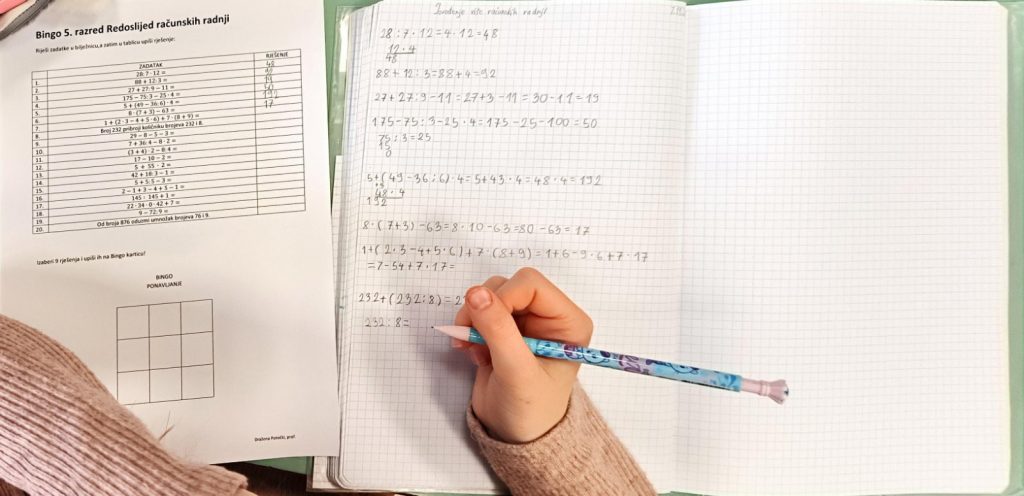 Bingo 5. razred Redoslijed računskih radnji
Riješi zadatke u bilježnicu,a zatim u tablicu upiši rješenje:
ZADATAK RJEŠENJE
1. 28: 7 · 12 = 48
2. 88 + 12: 3 = 92
3. 27 + 27: 9 – 11 = 19
4. 175 – 75: 3 – 25 · 4 = 50
5. 5 + (49 – 36: 6) · 4 = 192
6. 8 · (7 + 3) – 63 = 17
7. 1 + (2 · 3 – 4 + 5 · 6) + 7 · (8 + 9) =
8. Broj 232 pribroji količniku brojeva 232 i 8.
9. 29 – 8 – 5 – 3 =
10. 7 + 36: 4 – 8 · 2 =
11. (3 + 4) · 2 – 8: 4 =
12. 17 – 10 – 2 =
13. 5 + 55 · 2 =
14. 42 + 18: 3 – 1 =
15. 5 + 5: 5 – 3 =
16. 2 – 1 + 3 – 4 + 5 – 1 =
17. 145 : 145 + 1 =
18. 22 · 34 · 0 · 42 + 7 =
19. 9 – 72: 9 =
20. Od broja 876 oduzmi umnožak brojeva 76 i 9.
Izaberi 9 rješenja i upiši ih na Bingo karticu!
BINGO
PONAVLJANJE
Dražena Potočki, prof.
Izvođenje više računskih radnji
28 : 7 · 12 = 4 · 12 = 48
12 · 4
48
88 + 12 : 3 = 88 + 4 = 92
27 + 27 : 9 - 11 = 27 + 3 - 11 = 30 - 11 = 19
175 - 75 : 3 - 25 · 4 = 175 - 25 - 100 = 50
75 : 3 = 25
15
0
5 + ( 49 - 36 : 6 ) · 4 = 5 + 43 · 4 = 48 · 4 = 192
48 · 4
192
8 · ( 7 + 3 ) - 63 = 8 · 10 - 63 = 80 - 63 = 17
1 + ( 2 · 3 - 4 + 5 · 6 ) + 7 · ( 8 + 9 ) = 1 + 6 - 9 · 6 + 7 · 17
= 7 - 54 + 7 · 17 =
232 + ( 232 : 8 ) = 2
232 : 8 =